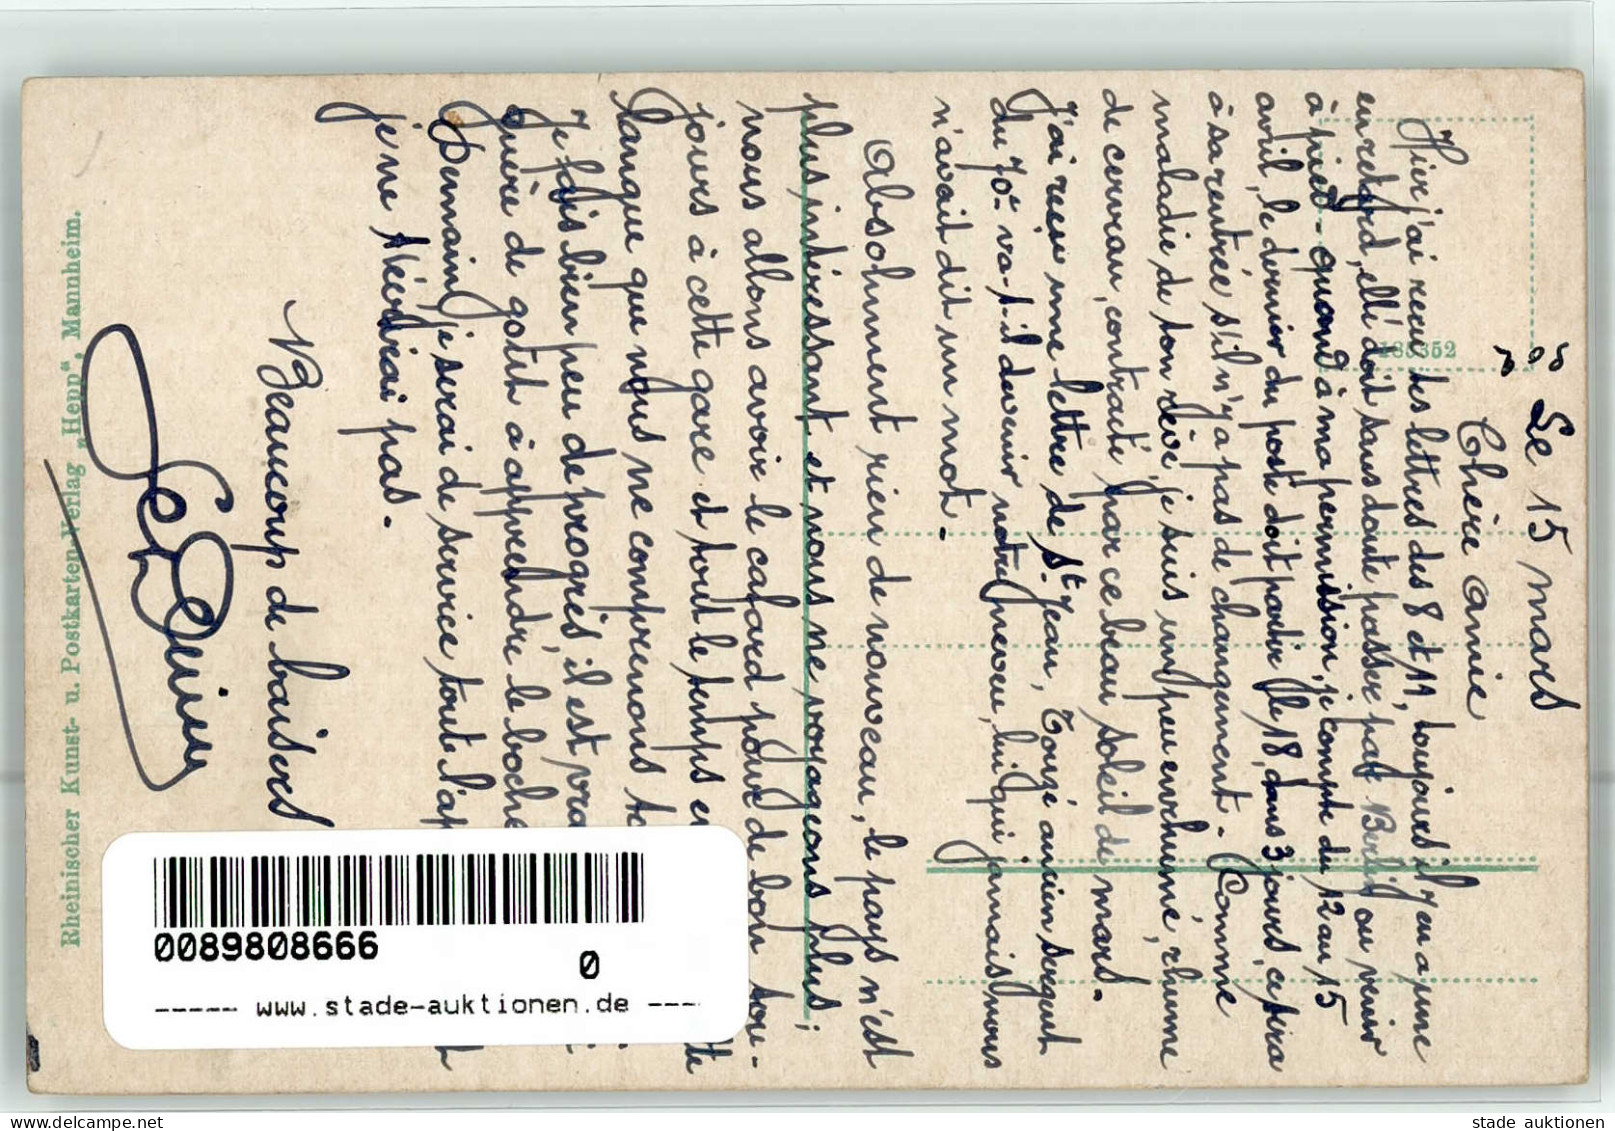 n° 8
Le 15 mars
Chère amie
Hier j'ai reçu tes lettres des 8 et 11, toujours il y en a une
en retard, elle doit sans doute passer par Berlin ou venir
à pied - quand à ma permission, je compte du 12 au 15
avril, le dernier du poste doit partir le 18, dans 3 jours, ce sera
à sa rentrée s'il n'y a pas de changement - Comme
maladie de ton rêve, je suis un peu enrhumé, rhume
de cerveau, contracté par ce beau soleil de mars.
J'ai reçu une lettre de St Jean, Touzé ancien sergent
du 70e va-t-il devenir notre neveu, lui qui jamais nous
n'avait dit un mot.
Absolument rien de nouveau, le pays n'est
plus intéressant et nous ne voyageons plus;
nous allons avoir le cafard pour de bon tou-
jours à cette gare et tout le temps en
langue que nous ne comprenons
Je fais bien peu de progrès, il est
guère de goût à apprendre le boche
Demain je serai de service toute l'ap
je ne t'écrirai pas.
Beaucoup de baisers
Rheinischer Kunst- u. Postkarten-Verlag „Hepp", Mannheim.
0089808666
0
----- www.stade-auktionen.de ----
stade auktionen